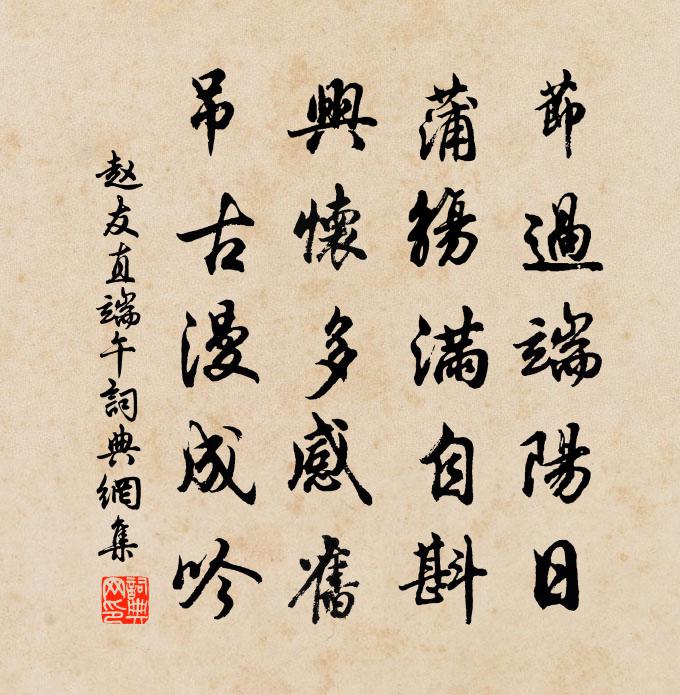 節過端陽日
蒲觴滿自斟
興懷多感舊
吊古漫成吟
赵友直端午詞典網集
詞典網印